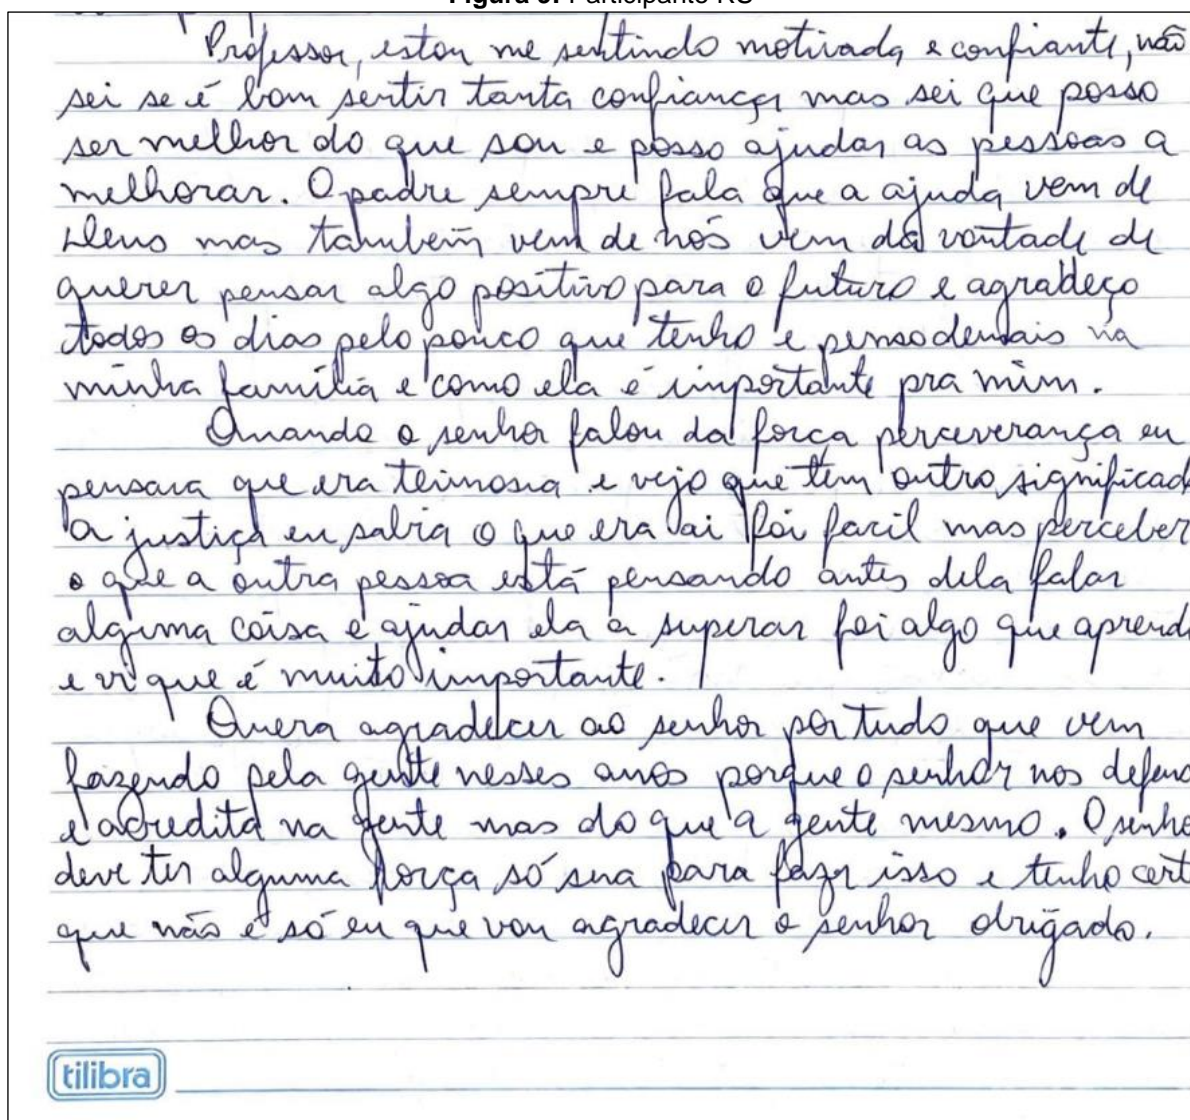 Professor, estou me sentindo motivada e confiante, não
sei se é bom sentir tanta confiança mas sei que posso
ser melhor do que sou e posso ajudar as pessoas a
melhorar. O padre sempre fala que a ajuda vem de
Deus mas também vem de nós vem da vontade de
querer pensar algo positivo para o futuro e agradeço
todos os dias pelo pouco que tenho e penso demais na
minha família e como ela é importante pra mim.
Quando o senhor falou da força perceverança eu
pensava que era teimosia e vejo que tem outro significad
a justiça eu sabia o que era ai foi facil mas perceber
o que a outra pessoa está pensando antes dela falar
alguma coisa e ajudar ela a superar foi algo que aprendi
e vi que é muito importante.
Quera agradecer ao senhor por tudo que vem
fazendo pela gente nesses anos porque o senhor nos defend
e acredita na gente mas do que a gente mesmo. O senho
deve ter alguma força só sua para fazer isso e tenho cert
que não é só eu que vou agradecer o senhor obrigado.
tilibra